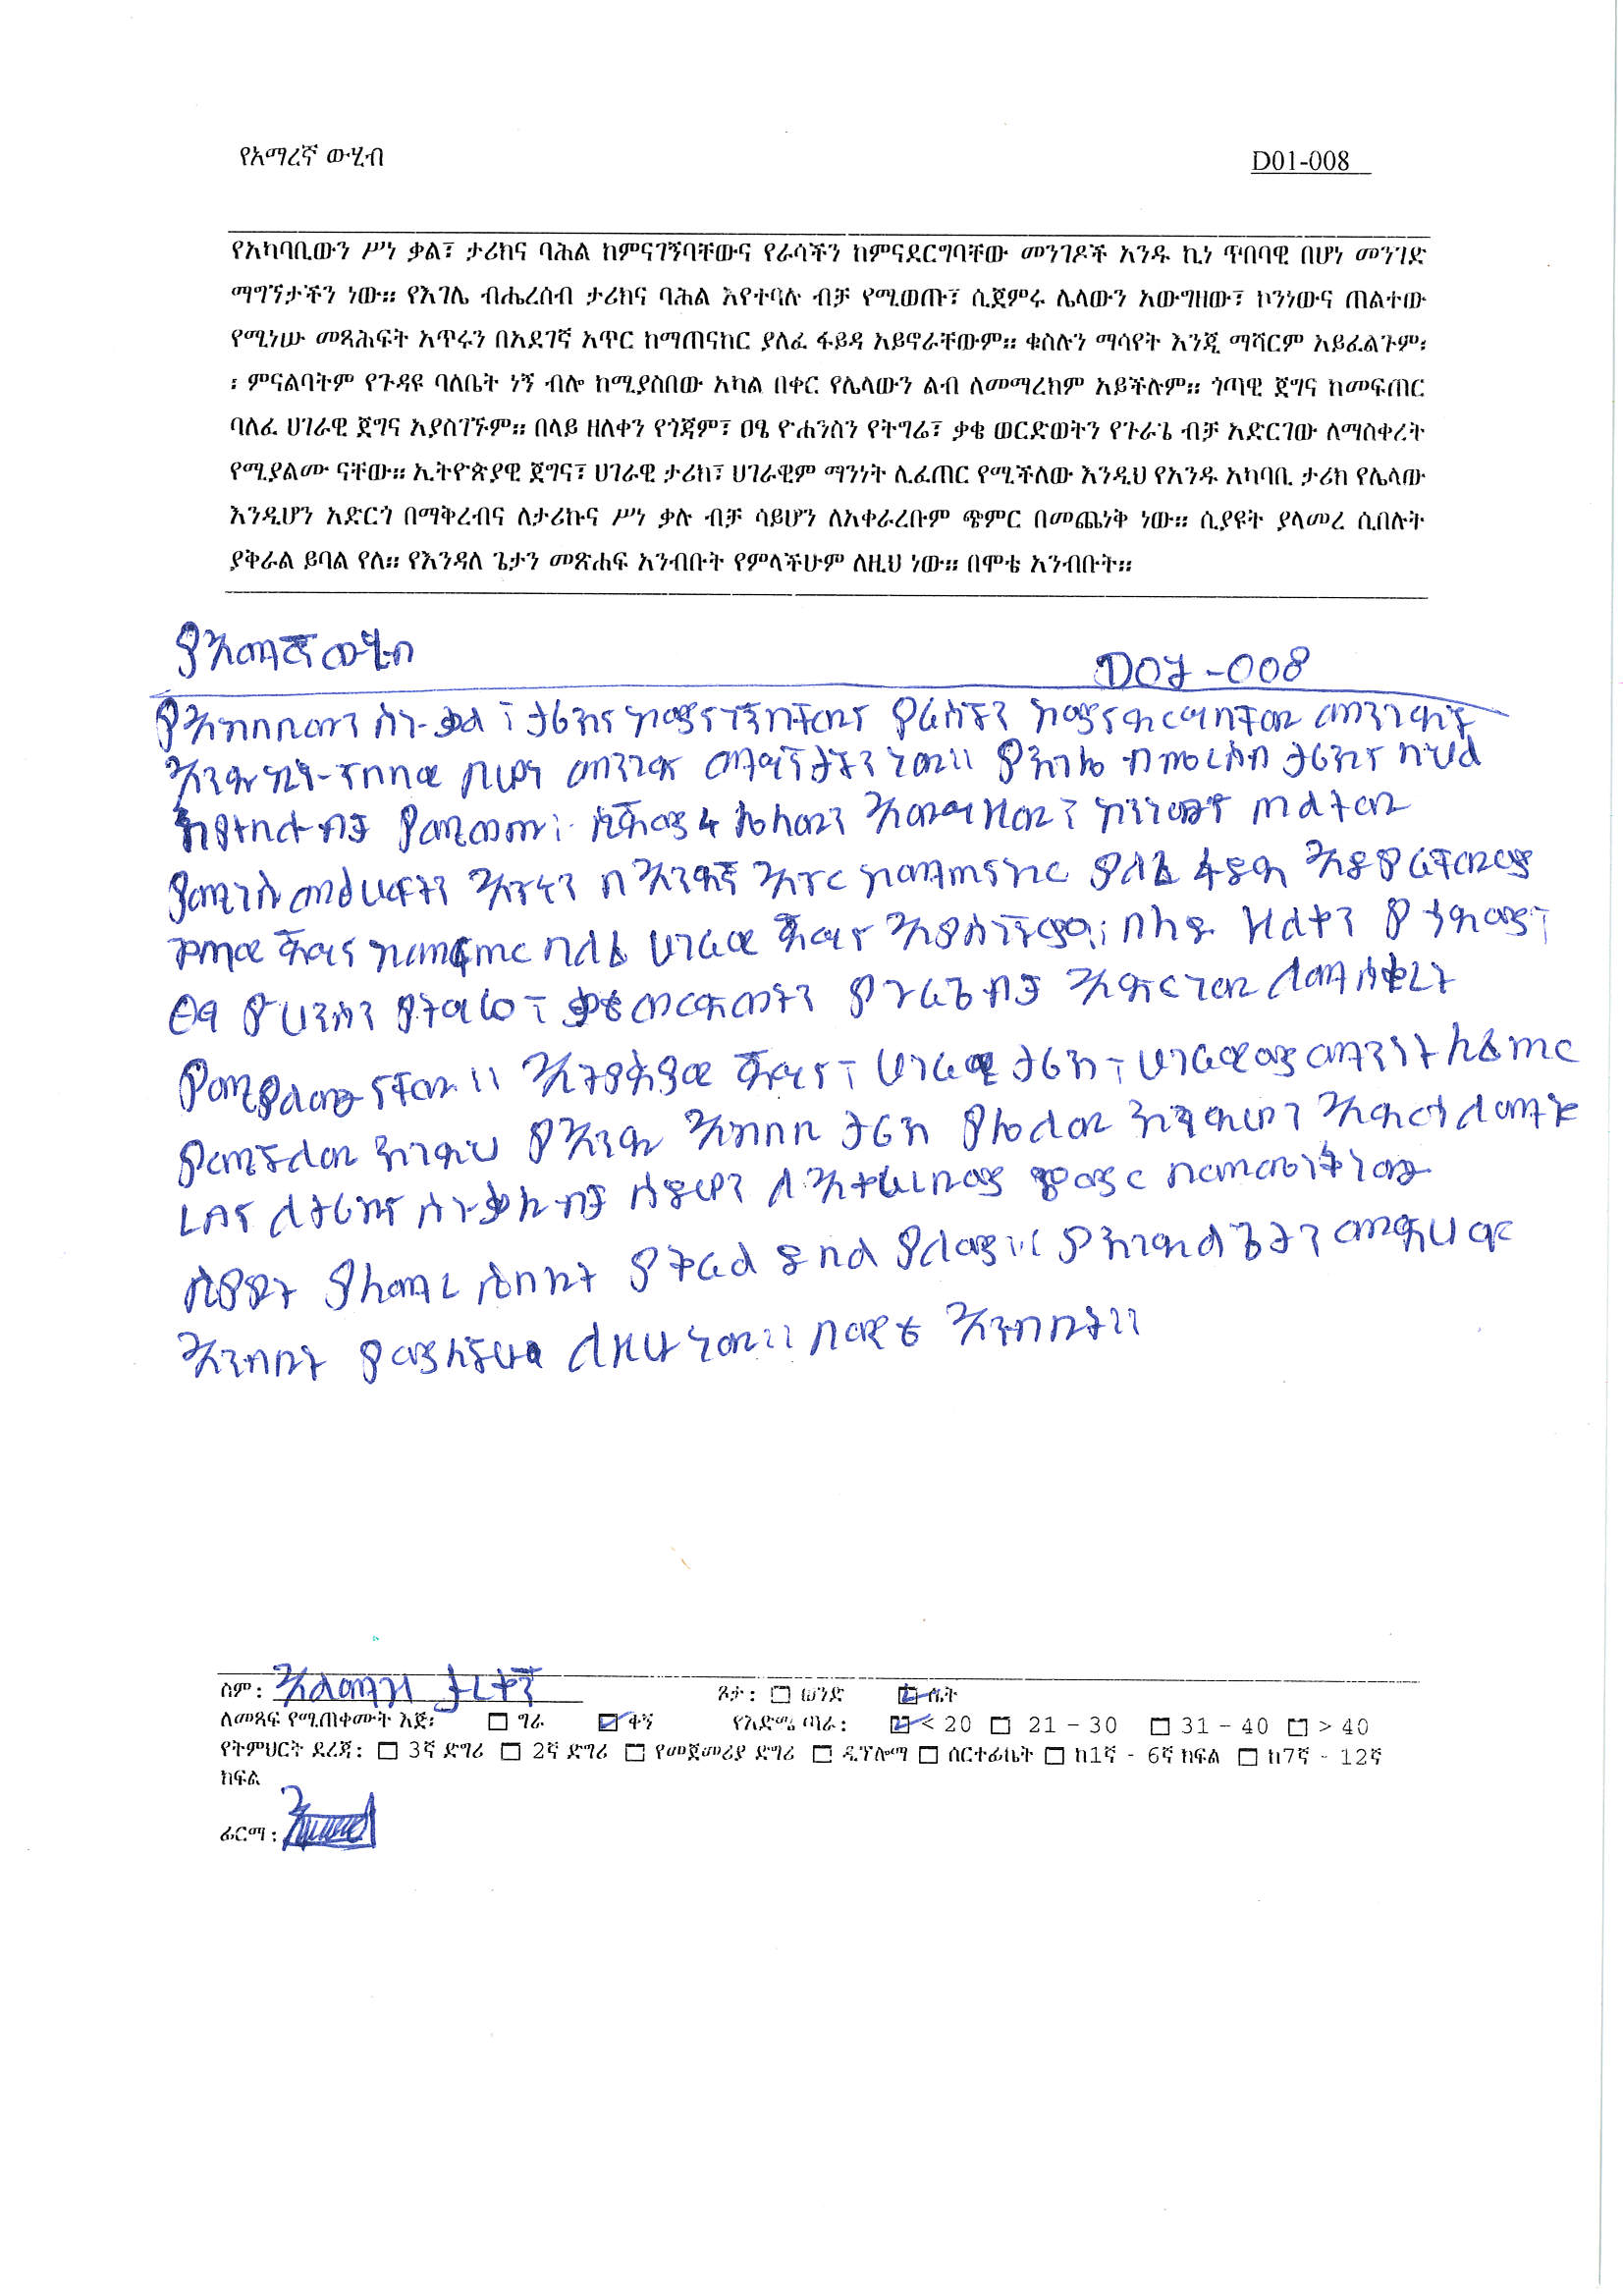 የአማረኛ ውሂብ D01-008
የአካባቢውን ሥነ ቃል፣ ታሪክና ባሕል ከምናገኝባቸውና የራሳችን ከምናደርግባቸው መንገዶች አንዱ ኪነ ጥበባዊ በሆነ መንገድ
ማግኘታችን ነው። የእገሌ ብሔረሰብ ታሪክና ባሕል እየተባሉ ብቻ የሚወጡ፣ ሲጀምሩ ሌላውን አውግዘው፣ ኮንነውና ጠልተው
የሚነሡ መጻሕፍት አጥሩን በአደገኛ አጥር ከማጠናከር ያለፈ ፋይዳ አይኖራቸውም። ቁስሉን ማሳየት እንጂ ማሻርም አይፈልጉም፡
፡ ምናልባትም የጉዳዩ ባለቤት ነኝ ብሎ ከሚያስበው አካል በቀር የሌላውን ልብ ለመማረክም አይችሉም። ጎጣዊ ጀግና ከመፍጠር
ባለፈ ሀገራዊ ጀግና አያስገኙም። በላይ ዘለቀን የጎጃም፣ ዐፄ ዮሐንስን የትግሬ፣ ቃቄ ወርድወትን የጉራጌ ብቻ አድርገው ለማስቀረት
የሚያልሙ ናቸው። ኢትዮጵያዊ ጀግና፣ ሀገራዊ ታሪክ፣ ህገራዊም ማንነት ሊፈጠር የሚችለው እንዲህ የአንዱ አካባቢ ታሪክ የሌላው
እንዲሆን አድርጎ በማቅረብና ለታሪኩና ሥነ ቃሉ ብቻ ሳይሆን ለአቀራረቡም ጭምር በመጨነቅ ነው። ሲያዩት ያላመረ ሲበሉት
ያቅራል ይባል የለ። የእንዳለ ጌታን መጽሐፍ አንብቡት የምላችሁም ለዚህ ነው። በሞቴ አንብቡት።
የአማኛ ውሂብ D01-008
የአካባቢውን ስነ-ቃል ፣ ታሪክና ከምናገኝባቸውና የራሳችን ከምናደርግባቸው መንገዶች
አንዱ ኪነ-ጥበባዊ በሆነ መንገድ ማግኘታችን ነው። የእገሌ ብሔረሰብ ታሪክና ባህል
እየተባሉ ብቻ የሚወጡ፡ ሲጀምሩ ሌላውን አውግዘው፣ ኮንነውና ጠልተው
የሚነሱ መፅሀፍትን አጥሩን በአደገኛ አጥር ከማጠናከር ያለፈ ፋይዳ አይኖራቸውም
ጎጣዊ ጀግና ከመፍጠር ባለፈ ሀገራዊ ጀግና አያስገኙም፡ በላይ ዘለቀን የጎጃም፣
ዐፄ ዮሀንስን የትግሬ፣ ቃቄ ወርድወትን የጉራጌ ብቻ አድርገው ለማስቀረት
የሚያልሙ ናቸው ። ኢትዮጵያዊ ጀግና፣ ሀገራዊ ታሪክ፣ ሀገራዊም ማንነት ሊፈጠር
የሚችለው እንዲህ የአንዱ አካባቢ ታሪክ የሌላው እንዲሆን አድርጎ በማቅ
ረብና ለታሪኩና ስነ-ቃሉ ብቻ ሳይሆን ለአቀራረቡም ጭምር በመጨነቅ ነው
ሲያዩት ያላመረ ሲበሉት ያቅራል ይባል የለም። የእንዳለ ጌታን መጽሀፍ
አንብቡት የምላችሁ ለዚህ ነው። በሞቴ አንብቡት።
ስም: አለማዝ ታረቀኝ ጾታ: ወንድ ሴት
ለመጻፍ የሚጠቀሙት እጅ: ግራ ቀኝ የእድሜ ጣራ: < 20 21 – 30 31 – 40 > 40
የትምህርት ደረጃ: 3ኛ ድግሪ 2ኛ ድግሪ የመጀመሪያ ድግሪ ዲፕሎማ ሰርተፊኬት ከ1ኛ - 6ኛ ክፍል ከ7ኛ - 12ኛ
ክፍል
ፊርማ: